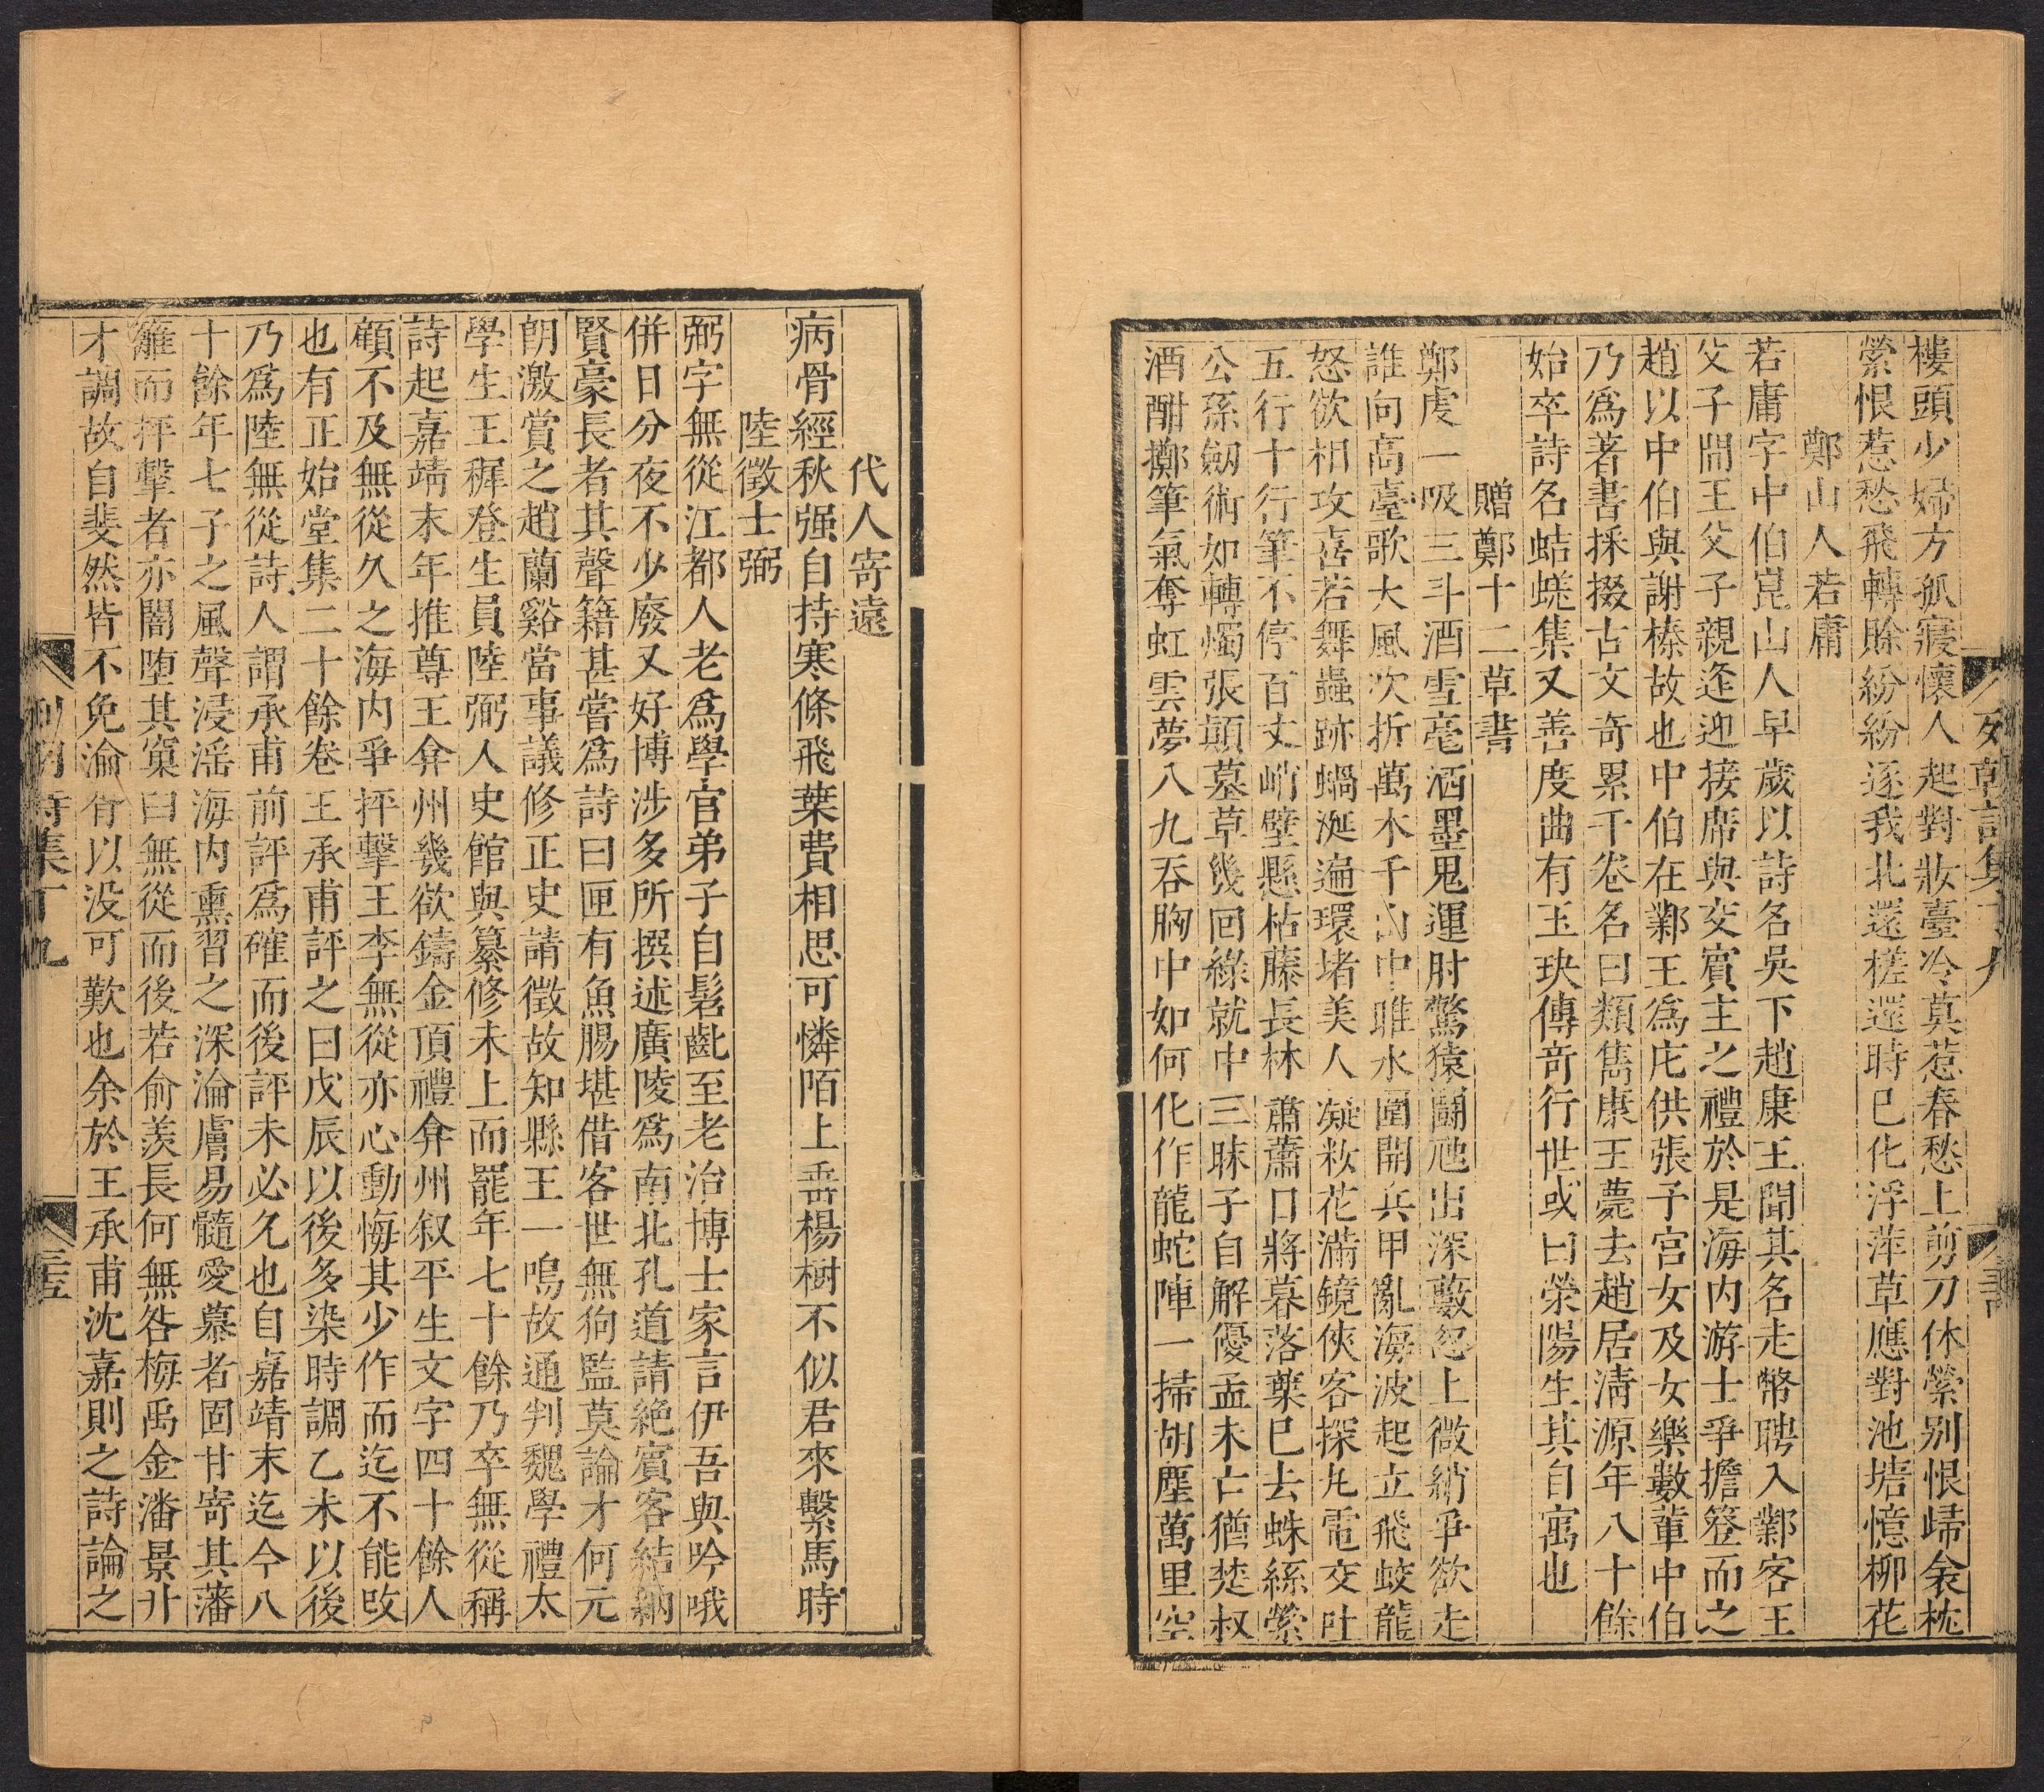 樓頭少婦方孤寢懷人起對妝臺冷莫惹春愁上剪刀休縈別恨歸衾枕
縈恨惹愁飛轉賒紛紛逐我北還槎還時已化浮萍草應對池塘憶柳花
鄭山人若庸
若庸字中伯崑山人早歲以詩名吳下趙康王聞其名走幣聘入鄴客王
父子間王父子親逢迎接席與交賓主之禮於是海內游士爭擔簦而之
趙以中伯與謝榛故也中伯在鄴王爲庀供張予宮女及女樂數輩中伯
乃爲著書採掇古文奇累千卷名曰類雋康王薨去趙居淸源年八十餘
始卒詩名蛣蜣集又善度曲有玉玦傳奇行世或曰榮陽生其自寓也
贈鄭十二草書
鄭虔一吸三斗酒雪毫洒墨鬼運肘驚猿鬬虺出深藪忽上微綃爭欲走
誰向高臺歌大風吹折萬木千山中睢水圍開兵甲亂海波起立飛蛟龍
怒欲相攻喜若舞蟲跡蝸涎遍環堵美人凝粧花滿鏡俠客探丸電交吐
五行十行筆不停百丈峭壁懸枯藤長林蕭蕭日將暮落葉已去蛛絲縈
公孫劒術如轉燭張顚墓草幾回綠就中三昧子自解優孟未亡猶楚叔
酒酣擲筆氣奪虹雲夢八九吞胸中如何化作龍蛇陣一掃胡塵萬里空
代人寄遠
病骨經秋强自持寒條飛葉費相思可憐陌上垂楊樹不似君來繫馬時
陸徵士弼
弼字無從江都人老爲學官弟子自髫齔至老治博士家言伊吾與吟哦
併日分夜不少廢又好博涉多所撰述廣陵爲南北孔道請絶賓客結納
賢豪長者其聲籍甚嘗爲詩曰匣有魚腸堪借客世無狗監莫論才何元
朗激賞之趙蘭谿當事議修正史請徵故知縣王一鳴故通判魏學禮太
學生王穉登生員陸弼人史館與纂修未上而罷年七十餘乃卒無從稱
詩起嘉靖末年推尊王弇州幾欲鑄金頂禮弇州叙平生文字四十餘人
顧不及無從久之海內爭抨擊王李無從亦心動悔其少作而迄不能改
也有正始堂集二十餘卷王承甫評之曰戊辰以後多染時調乙未以後
乃爲陸無從詩人謂承甫前評爲確而後評未必允也自嘉靖末迄今八
十餘年七子之風聲浸淫海內熏習之深淪膚易髓愛慕者固甘寄其藩
籬而抨擊者亦闇墮其窠臼無從而後若俞羨長何無咎梅禹金潘景升
才調故自斐然皆不免淪胥以没可歎也余於王承甫沈嘉則之詩論之